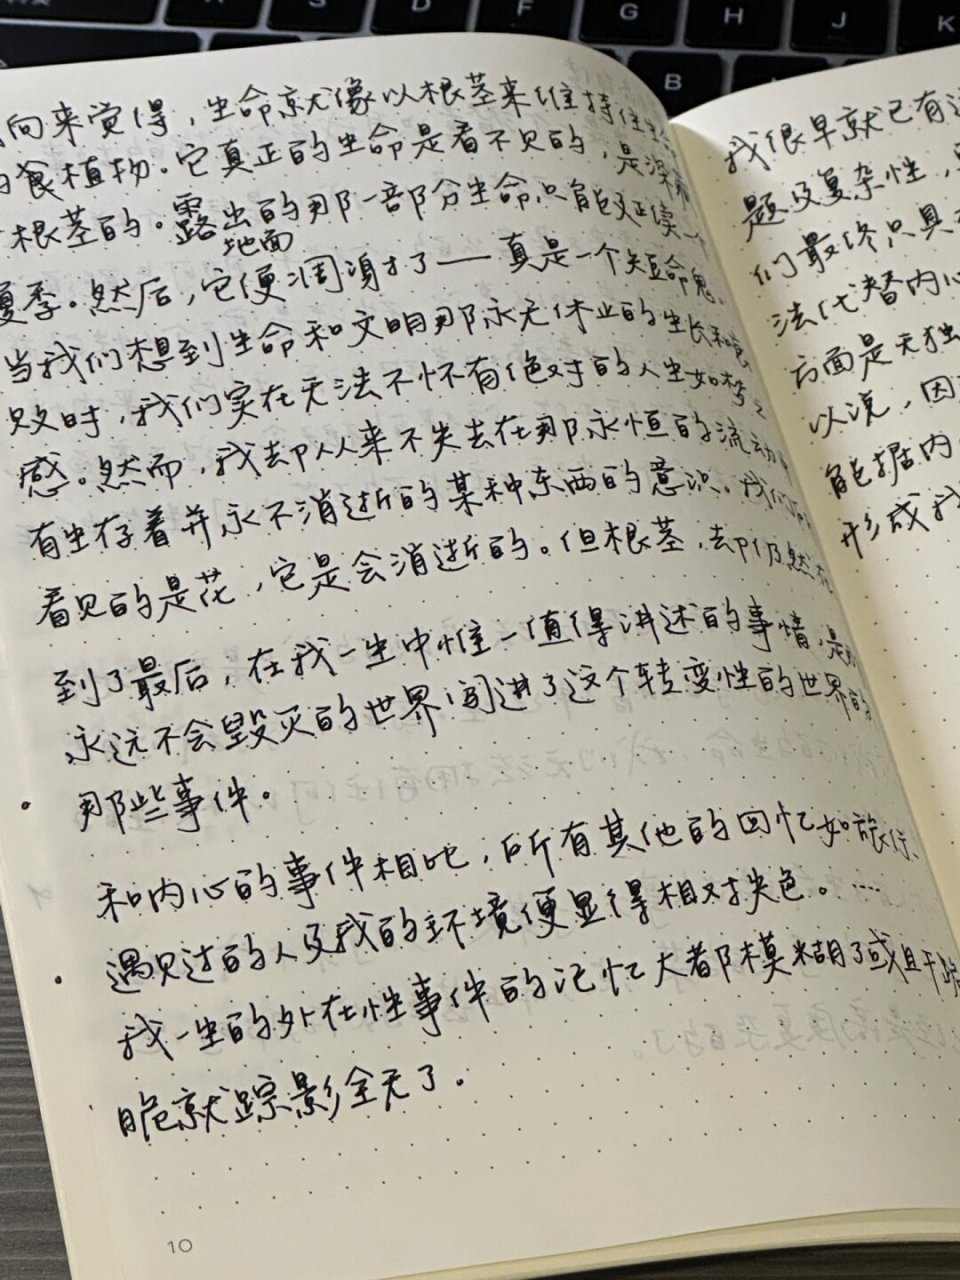 A S D F G H J K
B N
向来觉得，生命就像以根茎来维持住生命
的餐植物。它真正的生命是看不见的，是深藏
根茎的。露出地面的那一部分生命只能延续一个
夏季。然后，它便凋谢了——真是一个短命鬼。
当我们想到生命和文明那永无休止的生长和衰
败时，我们实在无法不怀有绝对的人生如梦之
感。然而，我却从来不失去在那永恒的流动中
有生存着并永不消逝的某种东西的意识。我们所
看见的是花，它是会消逝的。但根茎，却仍然在
到了最后，在我一生中惟一值得讲述的事情，是
永远不会毁灭的世界闯进了这个转变性的世界的
那些事件。
和内心的事件相比，所有其他的回忆如旅行、
遇见过的人及我的环境便显得相对失色。…
我一生的外在性事件的记忆大都模糊了或且干
脆就踪影全无了。
10
我很早就已有
题及复杂性，
们最终只具
法代替内心
方面是无独
以说，因
能据内
形成我